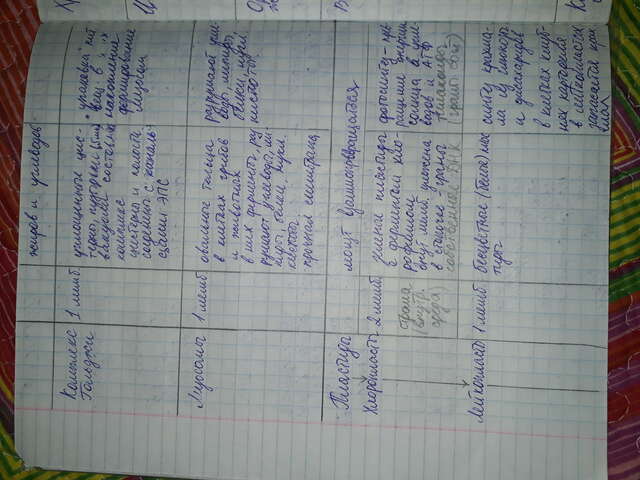 жиров и углеводов
Комплекс
Гольджи
1 мемб.
уплощенные цис-
терны, пузырьки
вакуоли состовл.
комплекс
цистерны и полости
соединены с каналь-
цами ЭПС
"упаковка" пит
вещ. в
накопление
формирование
лизосом
Лизосомы
1 мемб.
овальные тельца
в клетках грибов
и животных
в них ферменты, раз
рушают углеводы, ли-
пиды, белки, нукл.
кислоты.
прочная мембрана
разрушают угле-
воды, липиды,
белки, нукл.
кислоты.
Пластиды
могут взаимопревращаться
Хлоропласты
2 мемб.
строма
(внутр.
среда)
зеленые пластиды
с ферментом хло-
рофиллом
внут. мемб. уложена
в стопочке - граны
собственные ДНК
фотосинтез - прев
ращение энергии
солнца в угле-
водов и АТФ
тилакоиды
(граны
Лейкопласты
1 мемб.
бесцветные (белые) плас
тиды
синтез крахма-
ла из глюкозы
и дисахаридов
в клетках клуб-
нях картофеля
в лейкопластах
запасается крах
мал